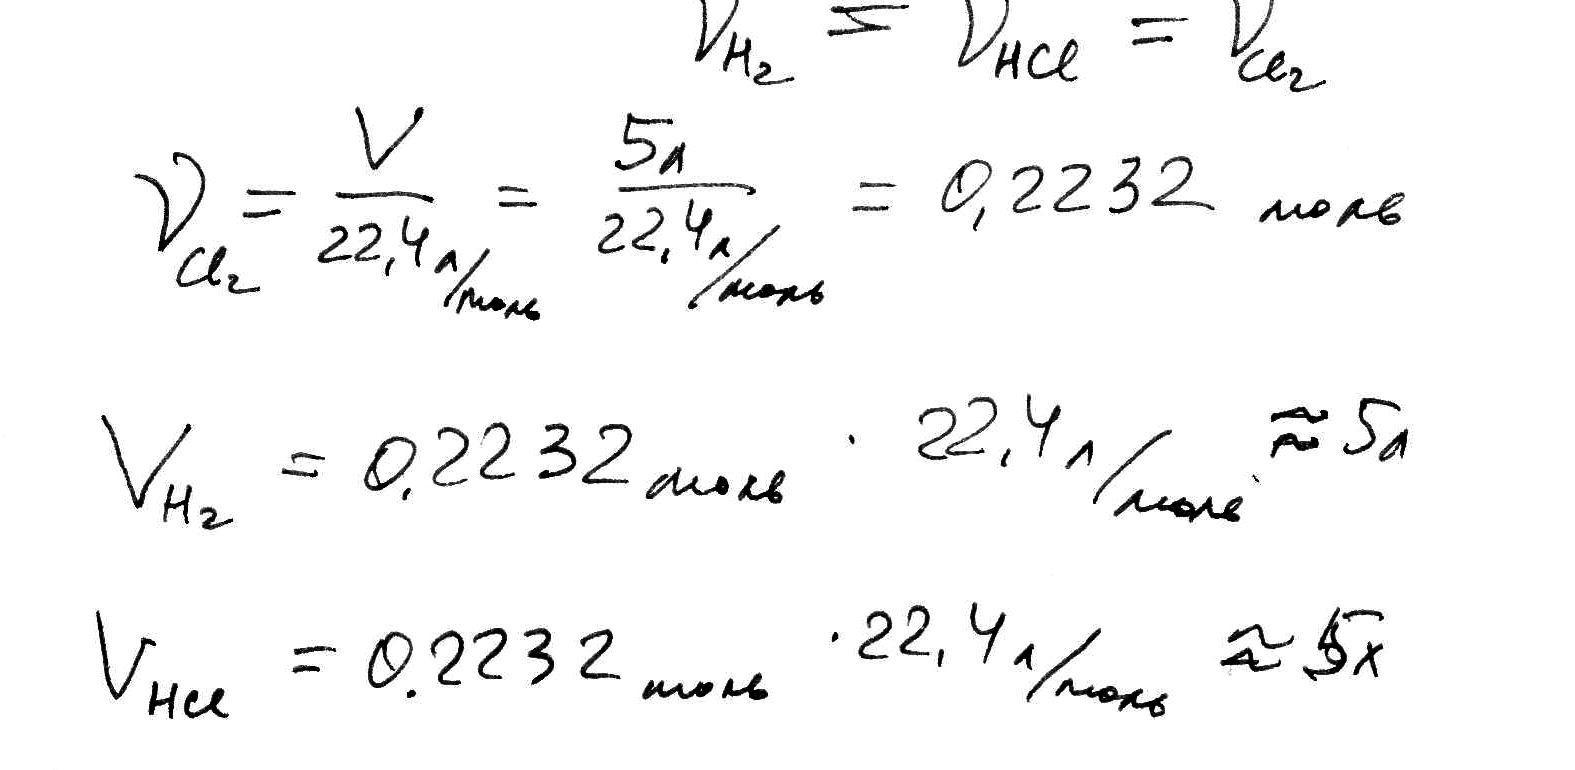 ν H₂ = ν HCl = ν Cl₂
ν Cl₂ = V / 22,4 л/моль = 5л / 22,4 л/моль = 0,2232 моль
V H₂ = 0,2232 моль · 22,4 л/моль ≈ 5л
V HCl = 0.2232 моль · 22,4 л/моль ≈ 5л